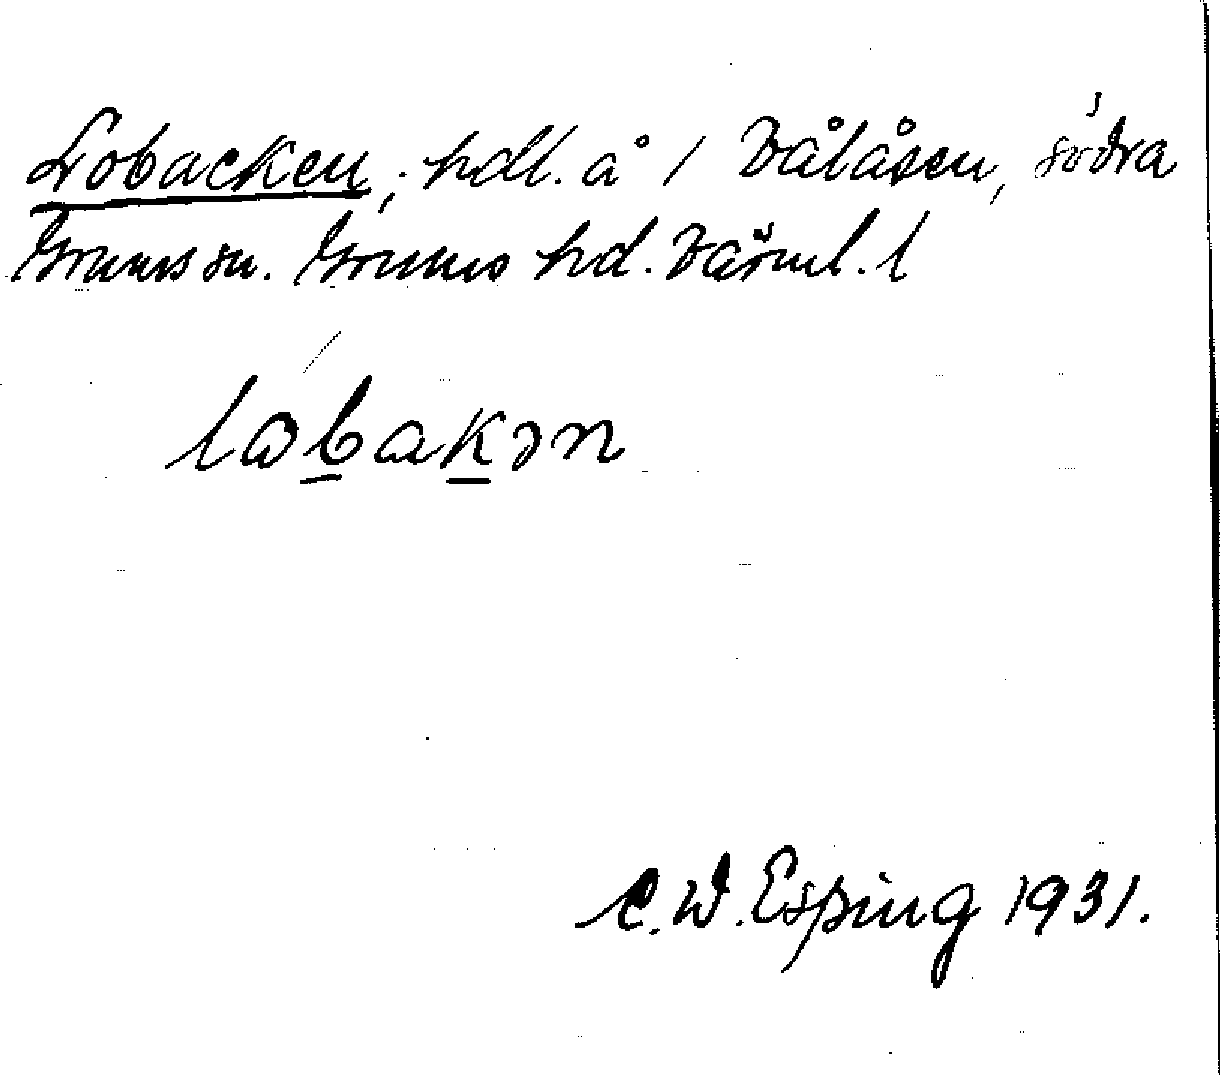 Lobacken, hdl. å / Vålåsen, södra
Grums sn. Grums hd. Värml. l
lobakən
C. W. Esping 1931.